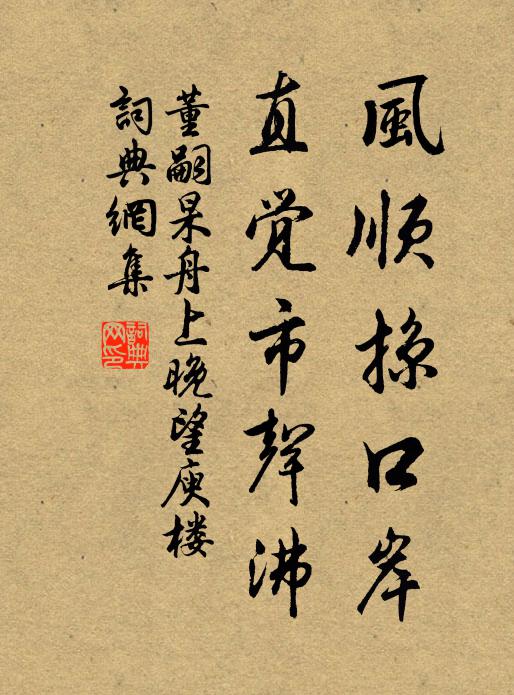 風順掠口岸
直覚市聲沸
董嗣杲舟上晚望庾楼
詞典網集
詞典网印